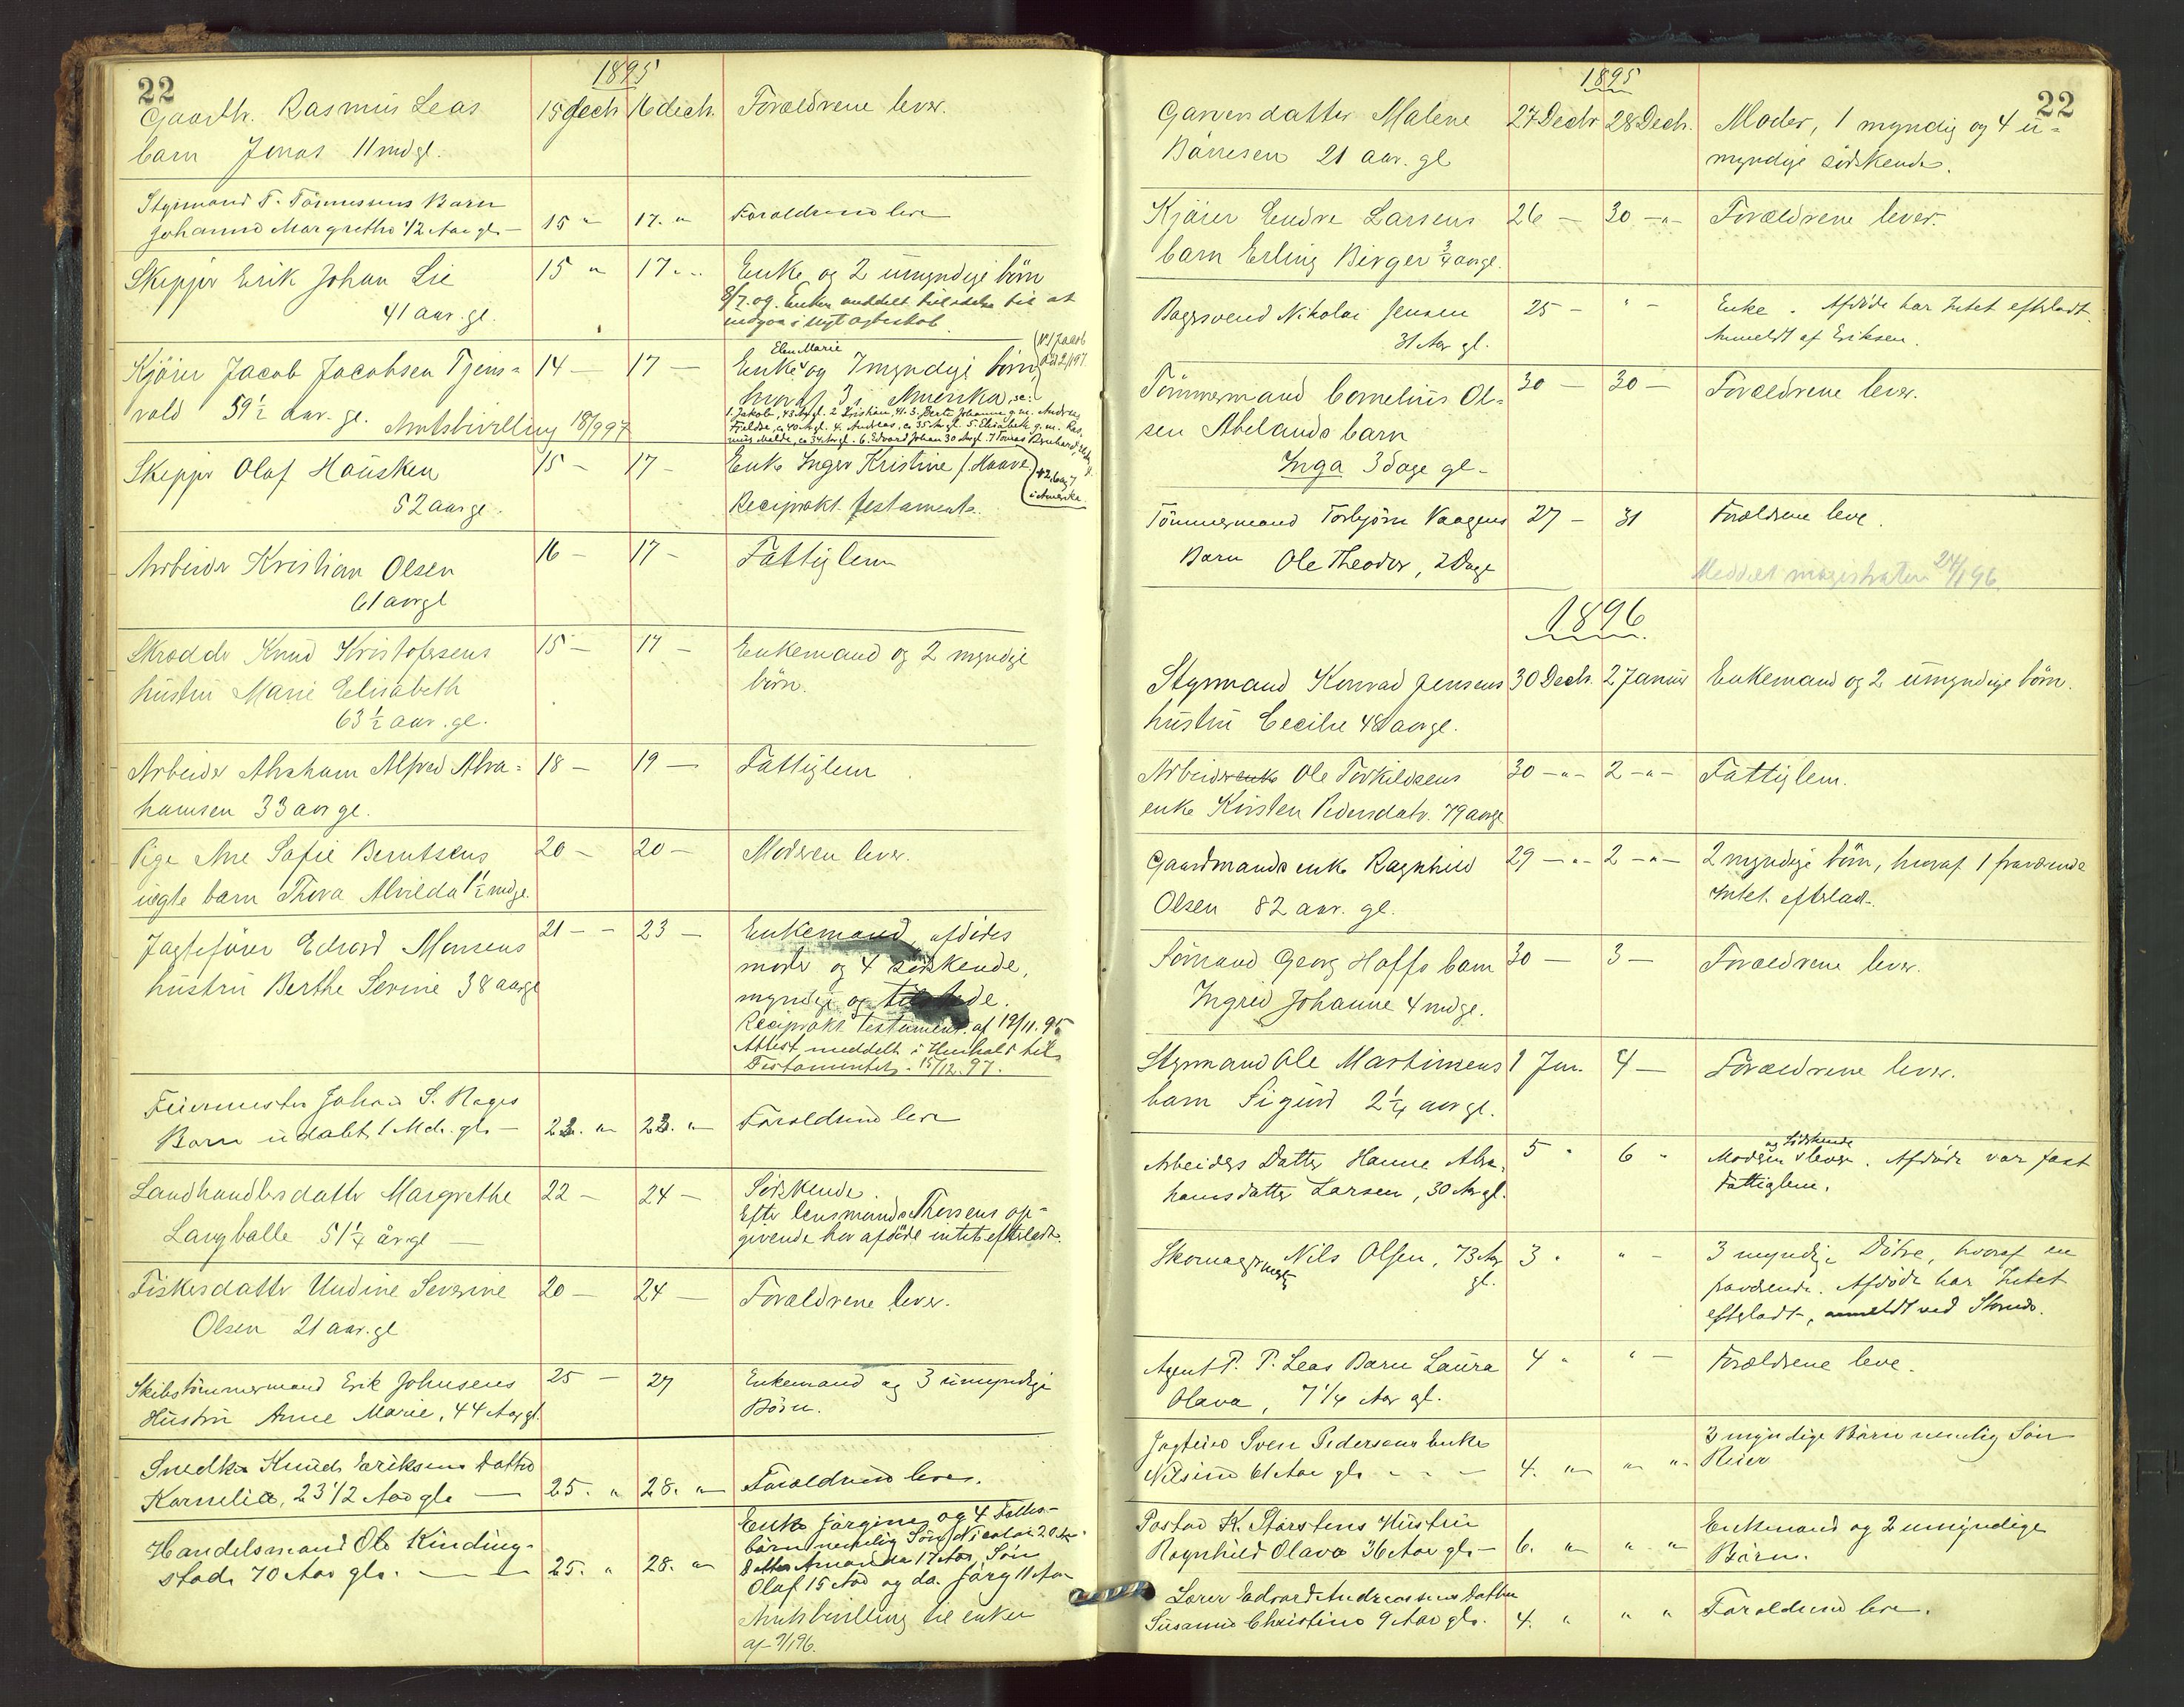 22
1895
Gaardbr. Rasmus Leas 15 decb 16 decb. Forældrene lever.
barn Jonas 11 md gl.
Styrmand T. Tönnessens Barn
Johanne Margrethe 1/2 Aar gl. — 15 " 17. " Forældrene leve
Skipper Erik Johan Lie 15 " 17 " Enke og 2 umyndige börn
41 aar. gl. 8/7.09. Enken meddelt tilladelse til at
indgaa i nyt ægteskab
Kjörer Jacob Jacobsen Tjens= 14 — 17 — Enke Elen Marie og 7 myndige börn,
vold 59 1/2 aar. gl. Amtsbevilling 18/9 97 hvoraf 3 i Amerika, se:
1. Jakob, 43 Aar gl. 2 Kristian, 41. 3. Berte Johanne g.m. Andreas
Fjelde, ca 40 Aar gl. 4. Andreas, ca 35 Aar gl. 5. Elisabeth g.m. Ras.
mus Malde, ca 34 Aar gl. 6. Edvard Johan 30 Aar gl. 7 Tomas Bernhard
Skipper Olaf Hausken 15 — 17 — Enke Inger Kristine f. Haave
(42, 6 og 7
i Amerika
52 aar gl. Reciprokt testamente.
Arbeider Kristian Olsen 16 — 17 — Fattiglem
61 aar gl
Skrædder Knud Kristofersens 15 — 17 — Enkemand og 2 myndige
hustru Marie Elisabeth börn.
63 1/2 aar. gl.
Arbeider Abraham Alfred Abra= 18 — 19 — Fattiglem
hamsen 33 aar gl.
Pige Ane Sofie Berntsens 20 — 20 — Moderen lever.
uegte barn Thora Alvilda 1 1/2 md gl.
Jagtefører Edvard Monsens 21 — 23 — Enkemand, afdödes
hustru Berthe Serine 38 aar gl moder og 4 söskende,
myndige og tilstede.
Reciprokt testament. af 19/11. 95
Attest meddelt i Henhold til
Testamentet. 15/12. 97.
Feiermester Johan S. Rages
Barn udöbt, 1 Md. gl. — 22. " 23. " Forældrene leve
Landhandlerdatter Margrethe 22 — 24 — Söskende.
Langballe 51 1/4 år gl — Efter lensmand Thersens op=
givende har afdöde intet efterladt.
Fiskerdatter Undine Severine 20 — 24 — Forældrene lever.
Olsen 21 aar. gl
Skibstömmermand Erik Johnsens 25 — 27 Enkemand og 3 umyndige
Hustru Anne Marie, 44 Aar gl. Börn.
Snedker Knud Eriksens Datter
Kornelia, 23 1/2 Aar gl. — 25. " 28. " Forældrene leve.
Handelsmand Ole Kinding- Enke Jörgine og 4 Fælles-
stad. 70 Aar gl. — 25. " 28. " börn nemlig Sön Nicolai 20 Aar
Datter Amanda 17 Aar, Sön
Olaf 15 Aar og do. Jörg 11 Aar
Amtsbevilling til enken
af 7/1 96.
22
1895
Garverdatter Malene 27 Decbr 28 Decb. Moder, 1 myndig og 4 u=
Börresen 21 aar. gl myndige söskende.
Kjörer Endre Larsens 26 — 30 — " — Forældrene lever.
barn Erling Birger 3/4 aar gl.
Bagersvend Nikolai Jensen 25 — " — Enke. Afdöde har Intet efterladt.
31 Aar gl. Anmeldt af Eriksen.
Tömmermand Cornelius Ol= 30 — 30 — Forældrene lever.
sen Abelands barn
Inga 3 dage gl —
Tömmermand Torbjörn Vaagens 27 — 31 Forældrene leve.
Barn Ole Theodor, 2 Dage
Meddelt magistraten 24/1 96.
1896
Styrmand Konrad Jensens 30 Decb. 2 Januar Enkemand og 2 umyndige börn.
hustru Cecilie 48 aar gl.
Arbeider enke Ole Torkildsens 30 — " — 2 — " — Fattiglem.
enke Kirsten Pedersdatr. 79 aar gl
Gaardmands enke Ragnhild 29 — " — 2 — " — 2 myndige börn, hvoraf 1 fraværende
Olsen 82 aar. gl. Intet efterlad.
Sömand Georg Hoffs barn 30 — 3 — Forældrene lever.
Ingrid Johanne 4 md gl.
Styrmand Ole Martinsens 1 Jan. 4 — Forældrene lever.
barn Sigurd 2 1/4 aar gl.
Arbeiders Datter Hanne Abra- 5 " 6 " Moderen og Södskende lever. Afdöde var fast
hamsdatter Larsen, 30 Aar gl. Fattiglem.
Skomagermester Nils Olsen, 73 Aar gl. 3 " " — 3 myndige Dötre, hvoraf en
fraværende. Afdöde har Intet
efterladt, anmeldt ved
Agent P. P. Leas Barn Laura 4 " " — Forældrene leve.
Olava, 7 1/4 Aar gl.
Jagteier Sven Pedersens Enke 3 myndige Börn nemlig Sön
Nilsine 61 Aar gl. — — — 4. " " " Reier
Postbud K. Störstens Hustru Enkemand og 2 umyndige
Ragnhild Olava 36 Aar gl. — 6. " " " Börn.
Lærer Edvard Andreassens Datter
Susanne Christine 9 Aar gl. 4. " " " Forældrene leve.